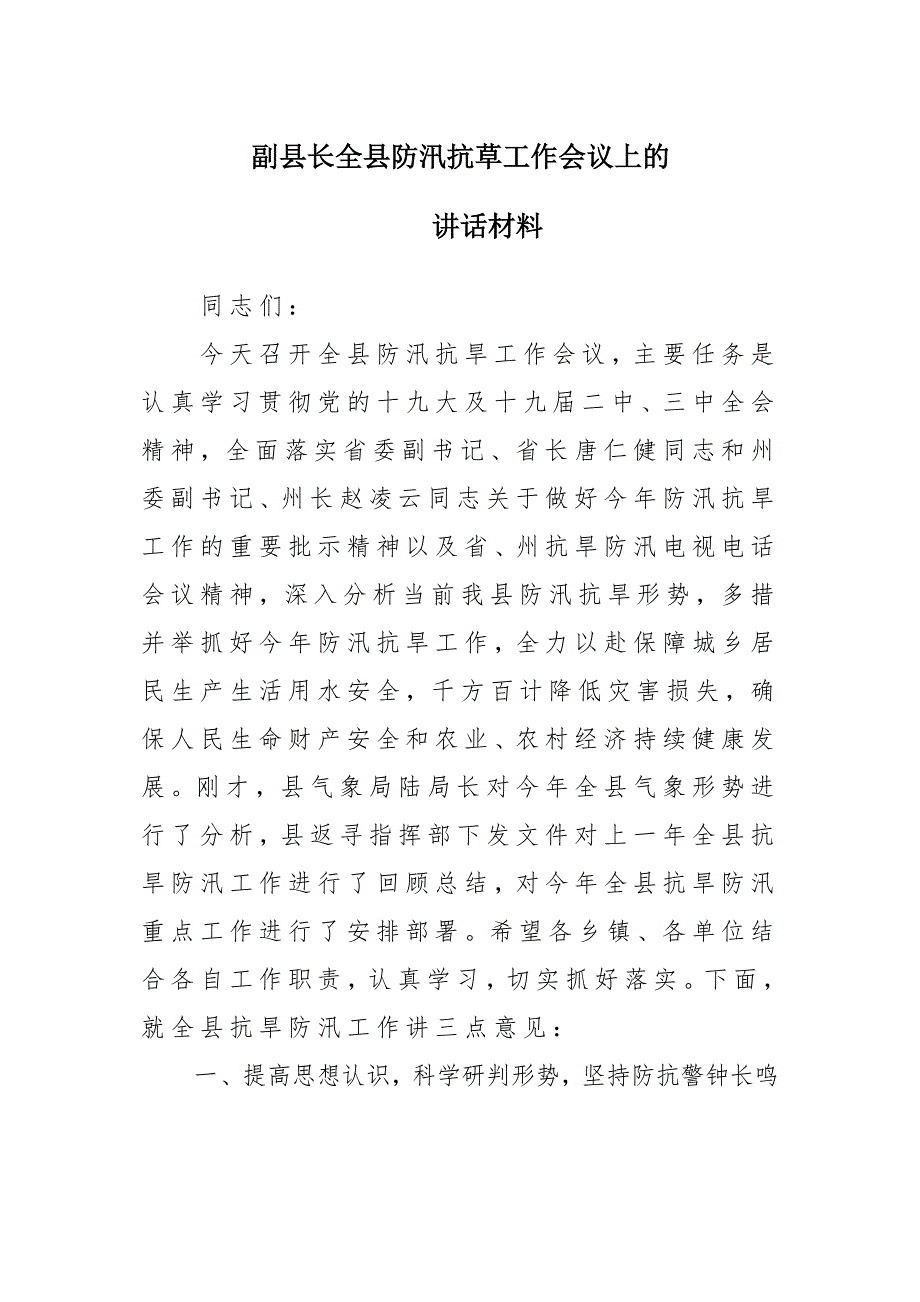 副县长全县防汛抗草工作会议上的
讲话材料
同志们：
今天召开全县防汛抗旱工作会议，主要任务是
认真学习贯彻党的十九大及十九届二中、三中全会
精神，全面落实省委副书记、省长唐仁健同志和州
委副书记、州长赵凌云同志关于做好今年防汛抗旱
工作的重要批示精神以及省、州抗旱防汛电视电话
会议精神，深入分析当前我县防汛抗旱形势，多措
并举抓好今年防汛抗旱工作，全力以赴保障城乡居
民生产生活用水安全，千方百计降低灾害损失，确
保人民生命财产安全和农业、农村经济持续健康发
展。刚才，县气象局陆局长对今年全县气象形势进
行了分析，县返寻指挥部下发文件对上一年全县抗
旱防汛工作进行了回顾总结，对今年全县抗旱防汛
重点工作进行了安排部署。希望各乡镇、各单位结
合各自工作职责，认真学习，切实抓好落实。下面，
就全县抗旱防汛工作讲三点意见：
一、提高思想认识，科学研判形势，坚持防抗警钟长鸣